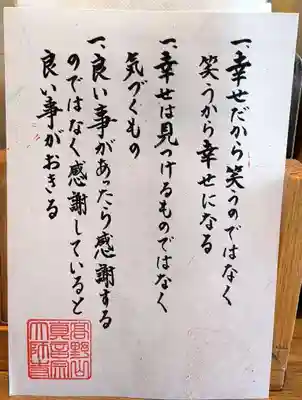 一、幸せだから笑うのではなく
笑うから幸せになる
一、幸せは見つけるものではなく
気づくもの
一、良い事があったら感謝する
のではなく感謝していると
良い事がおきる
高野山
真言宗